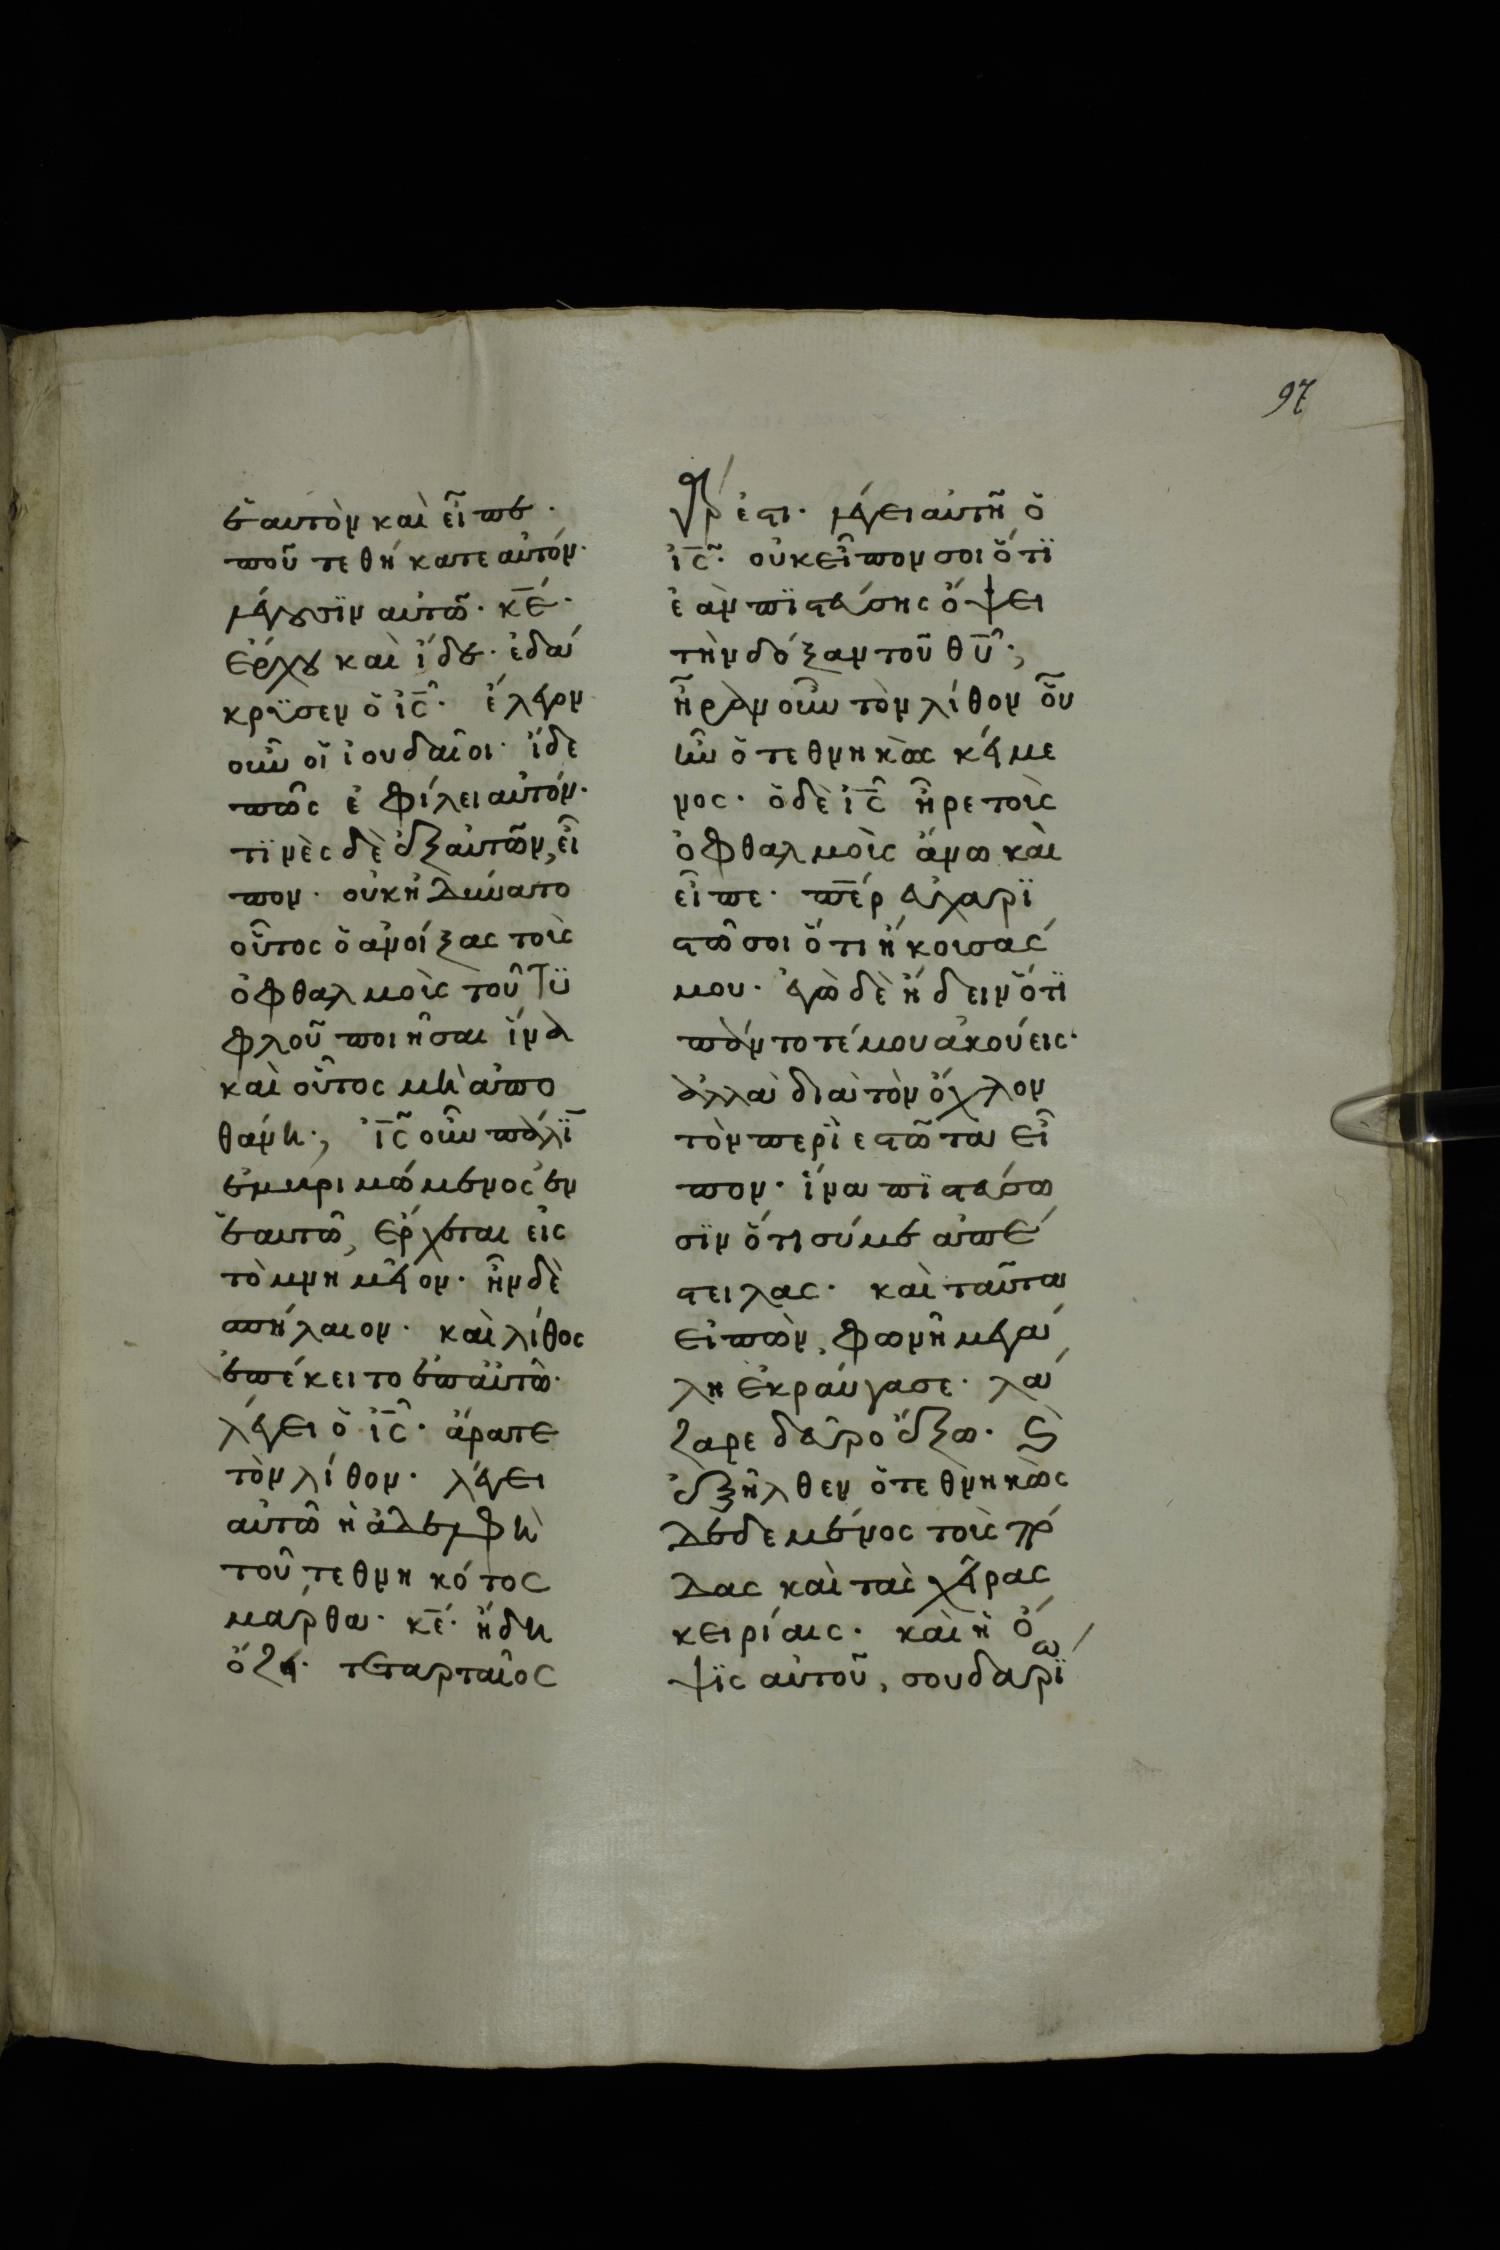 97
ἑαυτὸν καὶ εἶπε·
ποῦ τεθήκατε αὐτόν·
λέγουσϊν αὐτῶ· κ̅ε̅·
ἔρχου καὶ ἴδε· ἐδά
κρϋσεν ὁ ι̅ς̅· ἔλεγον
οὖν οἱ ἰουδαῖοι· ἴδε
πῶς ἐφίλει αὐτόν·
τϊνὲς δὲ ἐξ αὐτῶν, εἶ
πον· οὐκ ἠδύνατο
οὗτος ὁ ἀνοίξας τοὺς
ὀφθαλμοὺς τοῦ τϋ
φλοῦ ποιῆσαι ἵνα
καὶ οὗτος μὴ ἀπο
θάνη·, ι̅ς̅ οὖν πάλϊ
ἐμμριμώμενος ἐν
ἑαυτῶ, ἔρχεται εἰς
τὸ μνημεῖον· ἦν δὲ
σπήλαιον· καὶ λίθος
ἐπέκειτο ἐπαὐτῶ·
λέγει ὁ ι̅ς̅· ἄρατε
τὸν λίθον· λέγει
αὐτῶ ἡ ἀδελφὴ
τοῦ τεθνηκότος
μάρθα· κ̅ε̅· ἤδη
ὄζει· τεταρταῖος
γάρ ἐστι· λέγει αὐτῆ ὁ
ι̅ς̅· οὐκ εἶπον σοι ὅτϊ
ἐὰν πϊστεύσης ὄψει
τὴν δόξαν τοῦ θ̅υ̅·,
ἦραν οὖν τὸν λίθον οὗ
ἦν ὁ τεθνηκὼς κείμε
νος· ὁ δὲ ι̅ς̅ ἦρε τοὺς
ὀφθαλμοὺς ἄνω καὶ
εἶπε· π̅ε̅ρ εὐχαρϊ
στῶ σοι ὅτι ἤκουσάς
μου· ἐγὼ δὲ ἤδειν ὅτϊ
πάντοτέ μου ἀκούεις·
ἀλλὰ διὰ τὸν ὄχλον
τὸν περϊεστῶτα εἶ
πον· ἵνα πϊστεύσω
σϊν ὅτι σύ με ἀπέ
στειλας· καὶ ταῦτα
εἰπὼν, φωνῆ μεγά
λη ἐκραύγασε· λά
ζαρε δεῦρο ἔξω· ϗ
ἐξῆλθεν ὁ τεθνηκὼς
δεδεμένος τοὺς πό
δας καὶ τὰς χεῖρας
κειρίαις· καὶ ἡ ὄ
ψϊς αὐτοῦ, σουδαρϊω